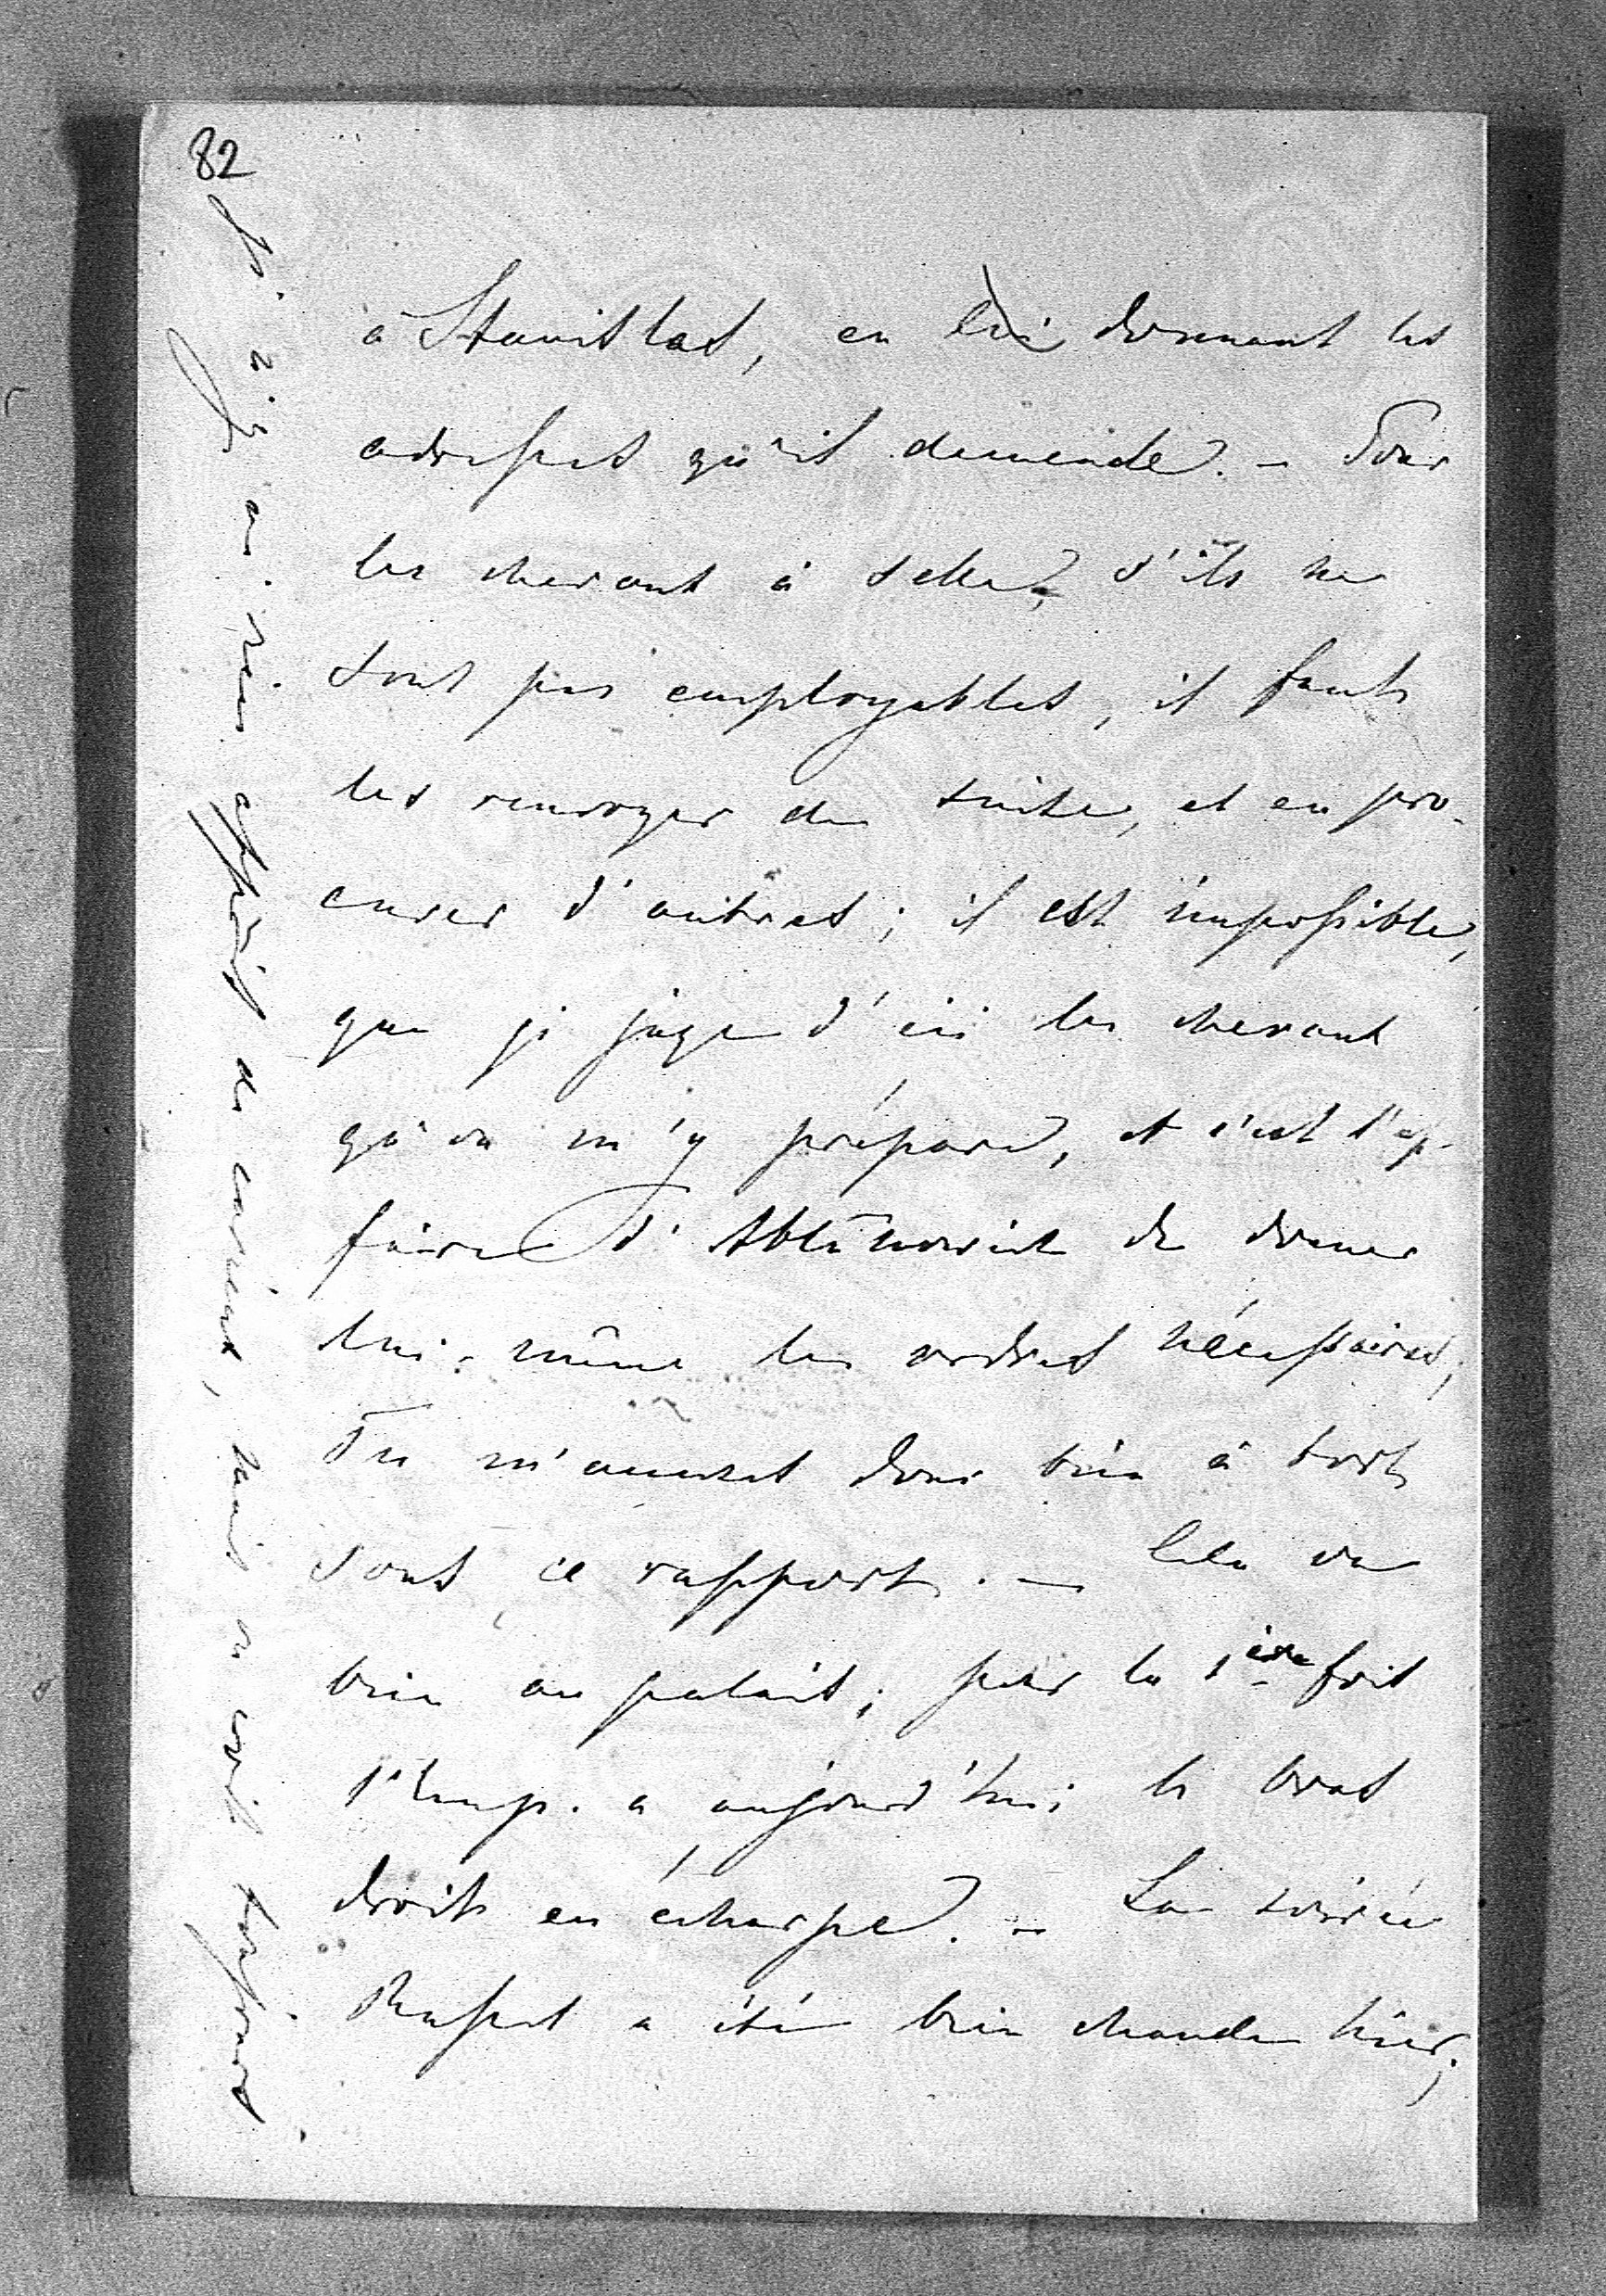 82
à Stanislas, en lui donnant les
adresses qu'il demande. – Pour
les chevaux à selle, s'ils ne
sont pas employables, il faut
les renvoyer de suite, et en pro-
curer d'autres; il est impossible,
que je juge d'ici les chevaux
qu'on m'y prépare, et c'est l'af-
faire d' de donner
lui-même les ordres nécessaires;
Tu m'accuses donc bien à tort
sous ce rapport. – Cela va
bien au palais; pour la 1ère fois
l'Emp. a aujourd'hui le bras
droit en écharpe. – La soirée
a été bien chaude hier;
Je n'ai rien appris de concert, mais on croit toujours